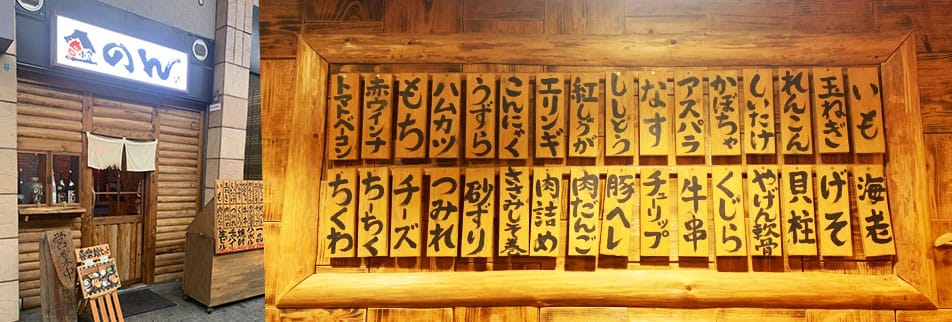 のん
営業中
いも
玉ねぎ
れんこん
しいたけ
かぼちゃ
アスパラ
なす
ししとう
紅しょうが
エリンギ
こんにゃく
うずら
ハムカツ
もち
赤ウインナ
トマトベーコン
海老
げそ
貝柱
やげん軟骨
くじら
牛串
チューリップ
豚ヘレ
肉だんご
肉詰め
ささみしそ巻
砂ずり
つみれ
チーズ
ちちく
ちくわ